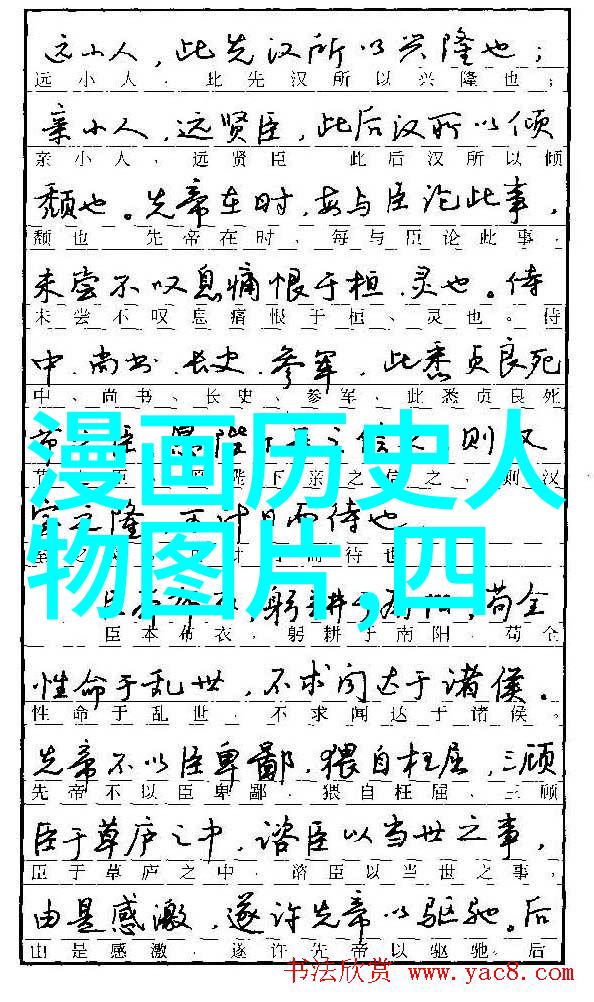 远小人，此先汉所以兴隆也；
远小人，此先汉所以兴隆也；
亲小人，远贤臣，此后汉所以倾
亲小人，远贤臣 此后汉所以倾
颓也。先帝在时，每与臣论此事，
颓也 先帝在时，每与臣论此事，
未尝不叹息痛恨于桓、灵也。侍
未尝不叹息痛恨于桓、灵也。侍
中、尚书、长史、参军，此悉贞良死
中、尚书、长史、参军，此悉贞良死
则汉
则汉
漫画历史人
物图片,四
隆 计日而待也
而待也
躬耕 苟全
臣本布衣，躬耕于南阳，苟全
性命于乱世，不求闻达于诸侯。
性命于乱世，不求闻达于诸侯。
先帝不以臣卑鄙，猥自枉屈，三顾
先帝不以臣卑鄙，猥自枉屈、三顾
臣于草庐之中，谘臣以当世之事，
臣于草庐之中，谘臣以当世之事，
由是感激，遂许先帝以驱驰。后
由是感激，遂许先帝以驱驰。后
书法欣赏 www.yac8.com